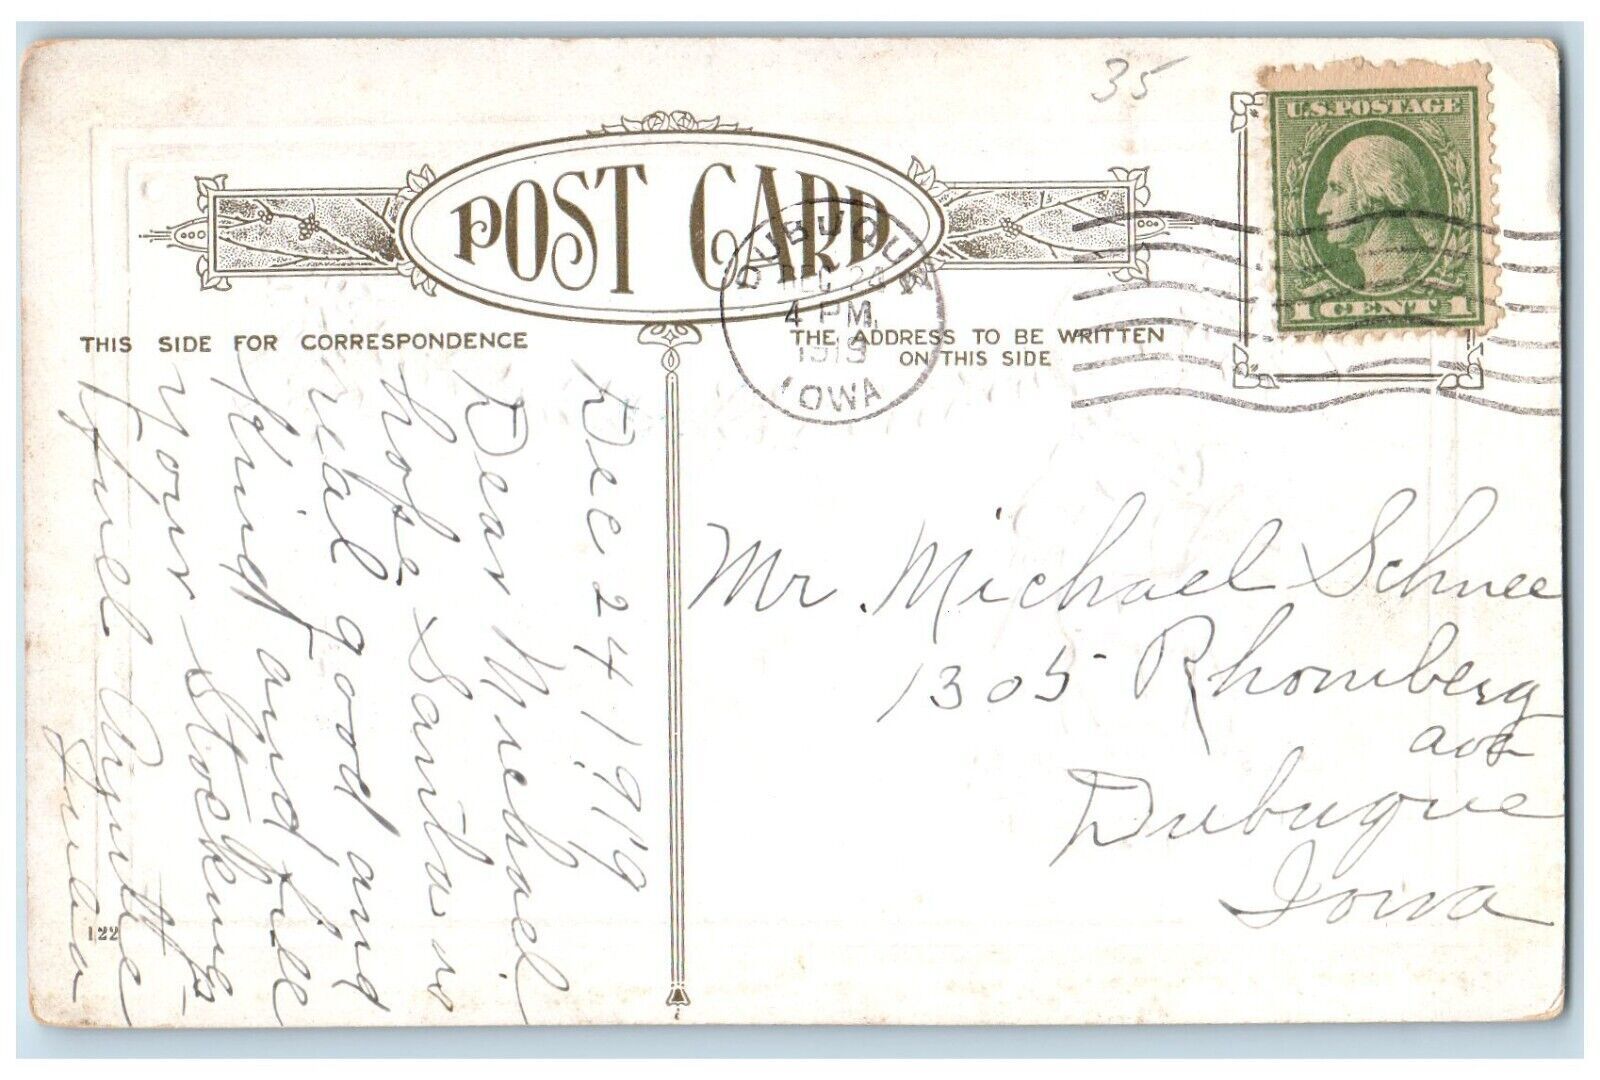 35
U.S. POSTAGE
1 CENT 1
POST CARD
DUBUQUE
DEC 24
4 PM.
1919
IOWA
THIS SIDE FOR CORRESPONDENCE
THE ADDRESS TO BE WRITTEN
ON THIS SIDE
Dec 24 1919
Dear Michael
hope Santa is
real good and
Kind and fill
your Stockings
full Auntie
Julia
Mr. Michael Schnee
1305 Rhomberg
ave
Dubuque
Iowa
122